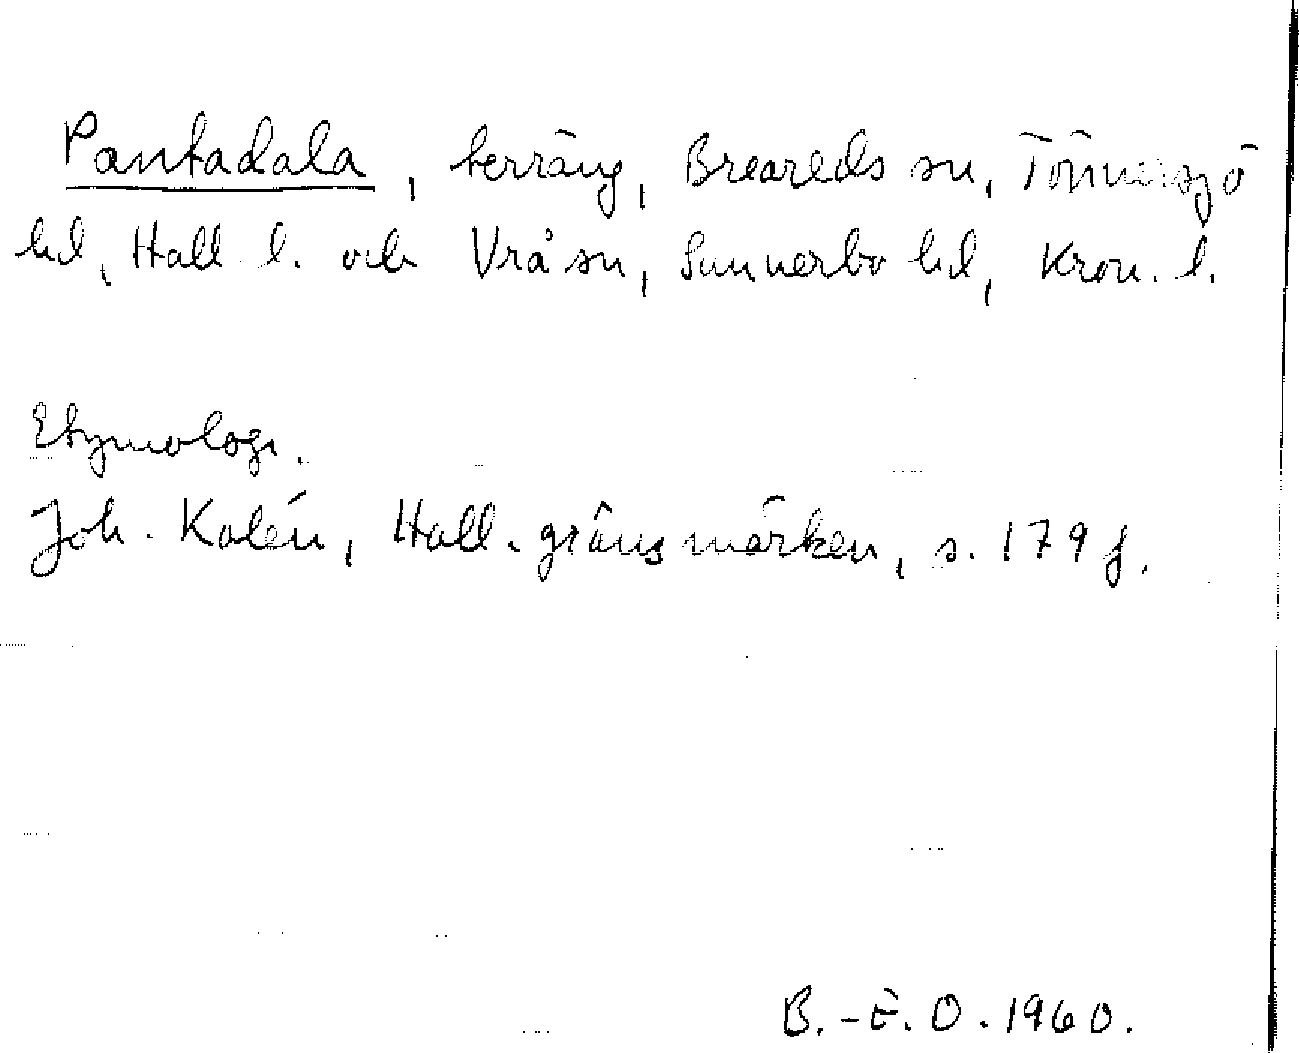 Pantadala, terräng, Breareds sn, Tönnersjö
hd, Hall. l. och Vrå sn, Sunnerbo hd, Kron. l.
Etymologi.
Joh. Kalén, Hall. gränsmärken, s. 179 f.
B.-E. O. 1960.